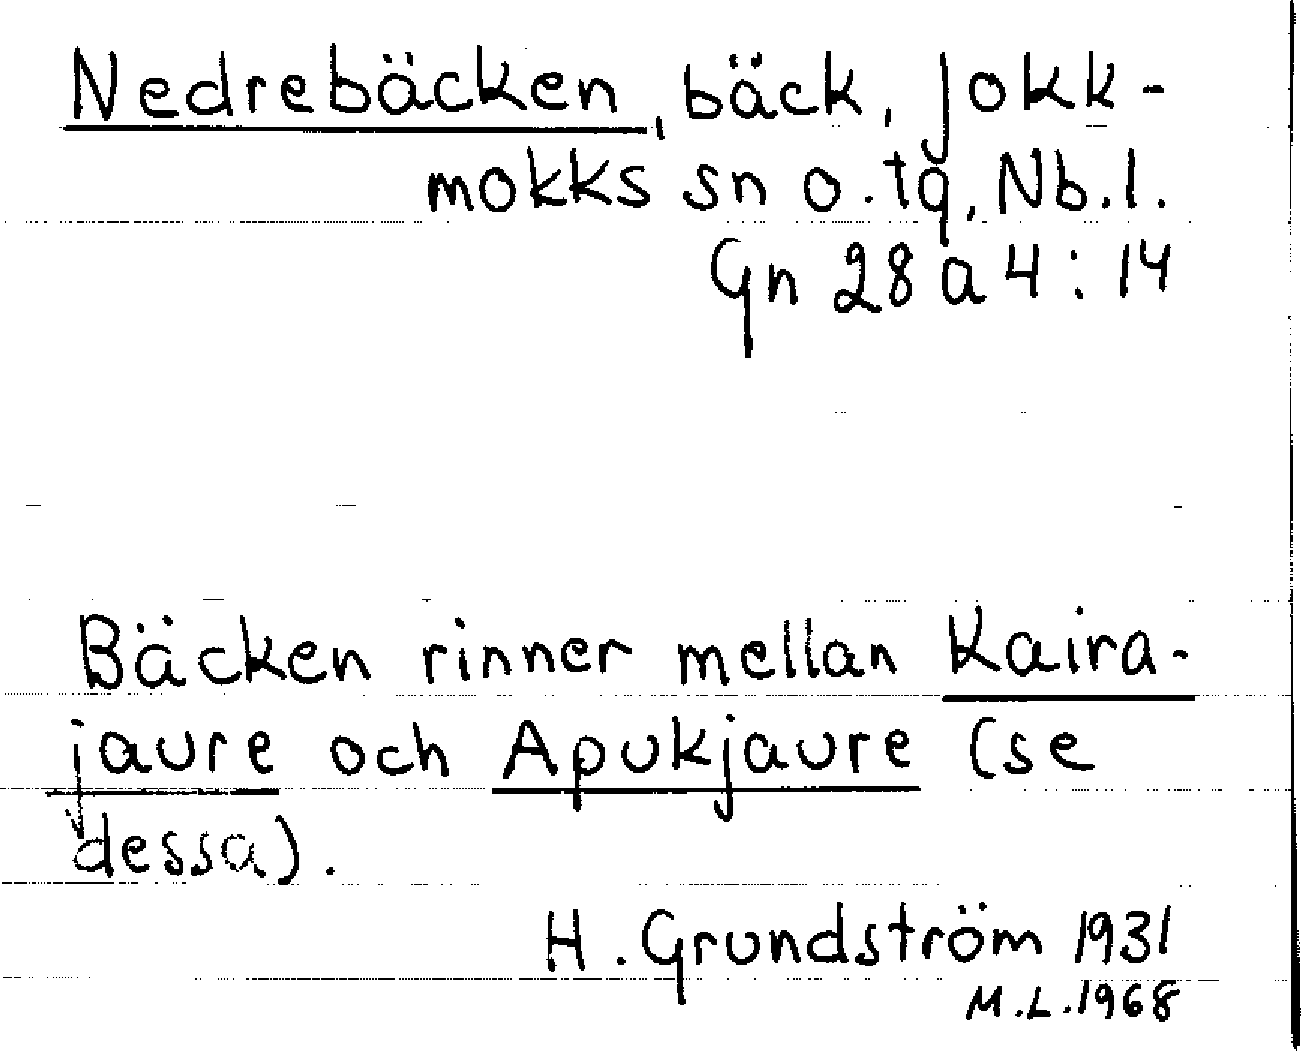 Nedrebäcken, bäck, Jokk-
mokks sn o. tg, Nb.l.
Gn 28 a 4 : 14
Bäcken rinner mellan Kaira-
jaure och Apukjaure (se
dessa).
H. Grundström 1931
M.L. 1968